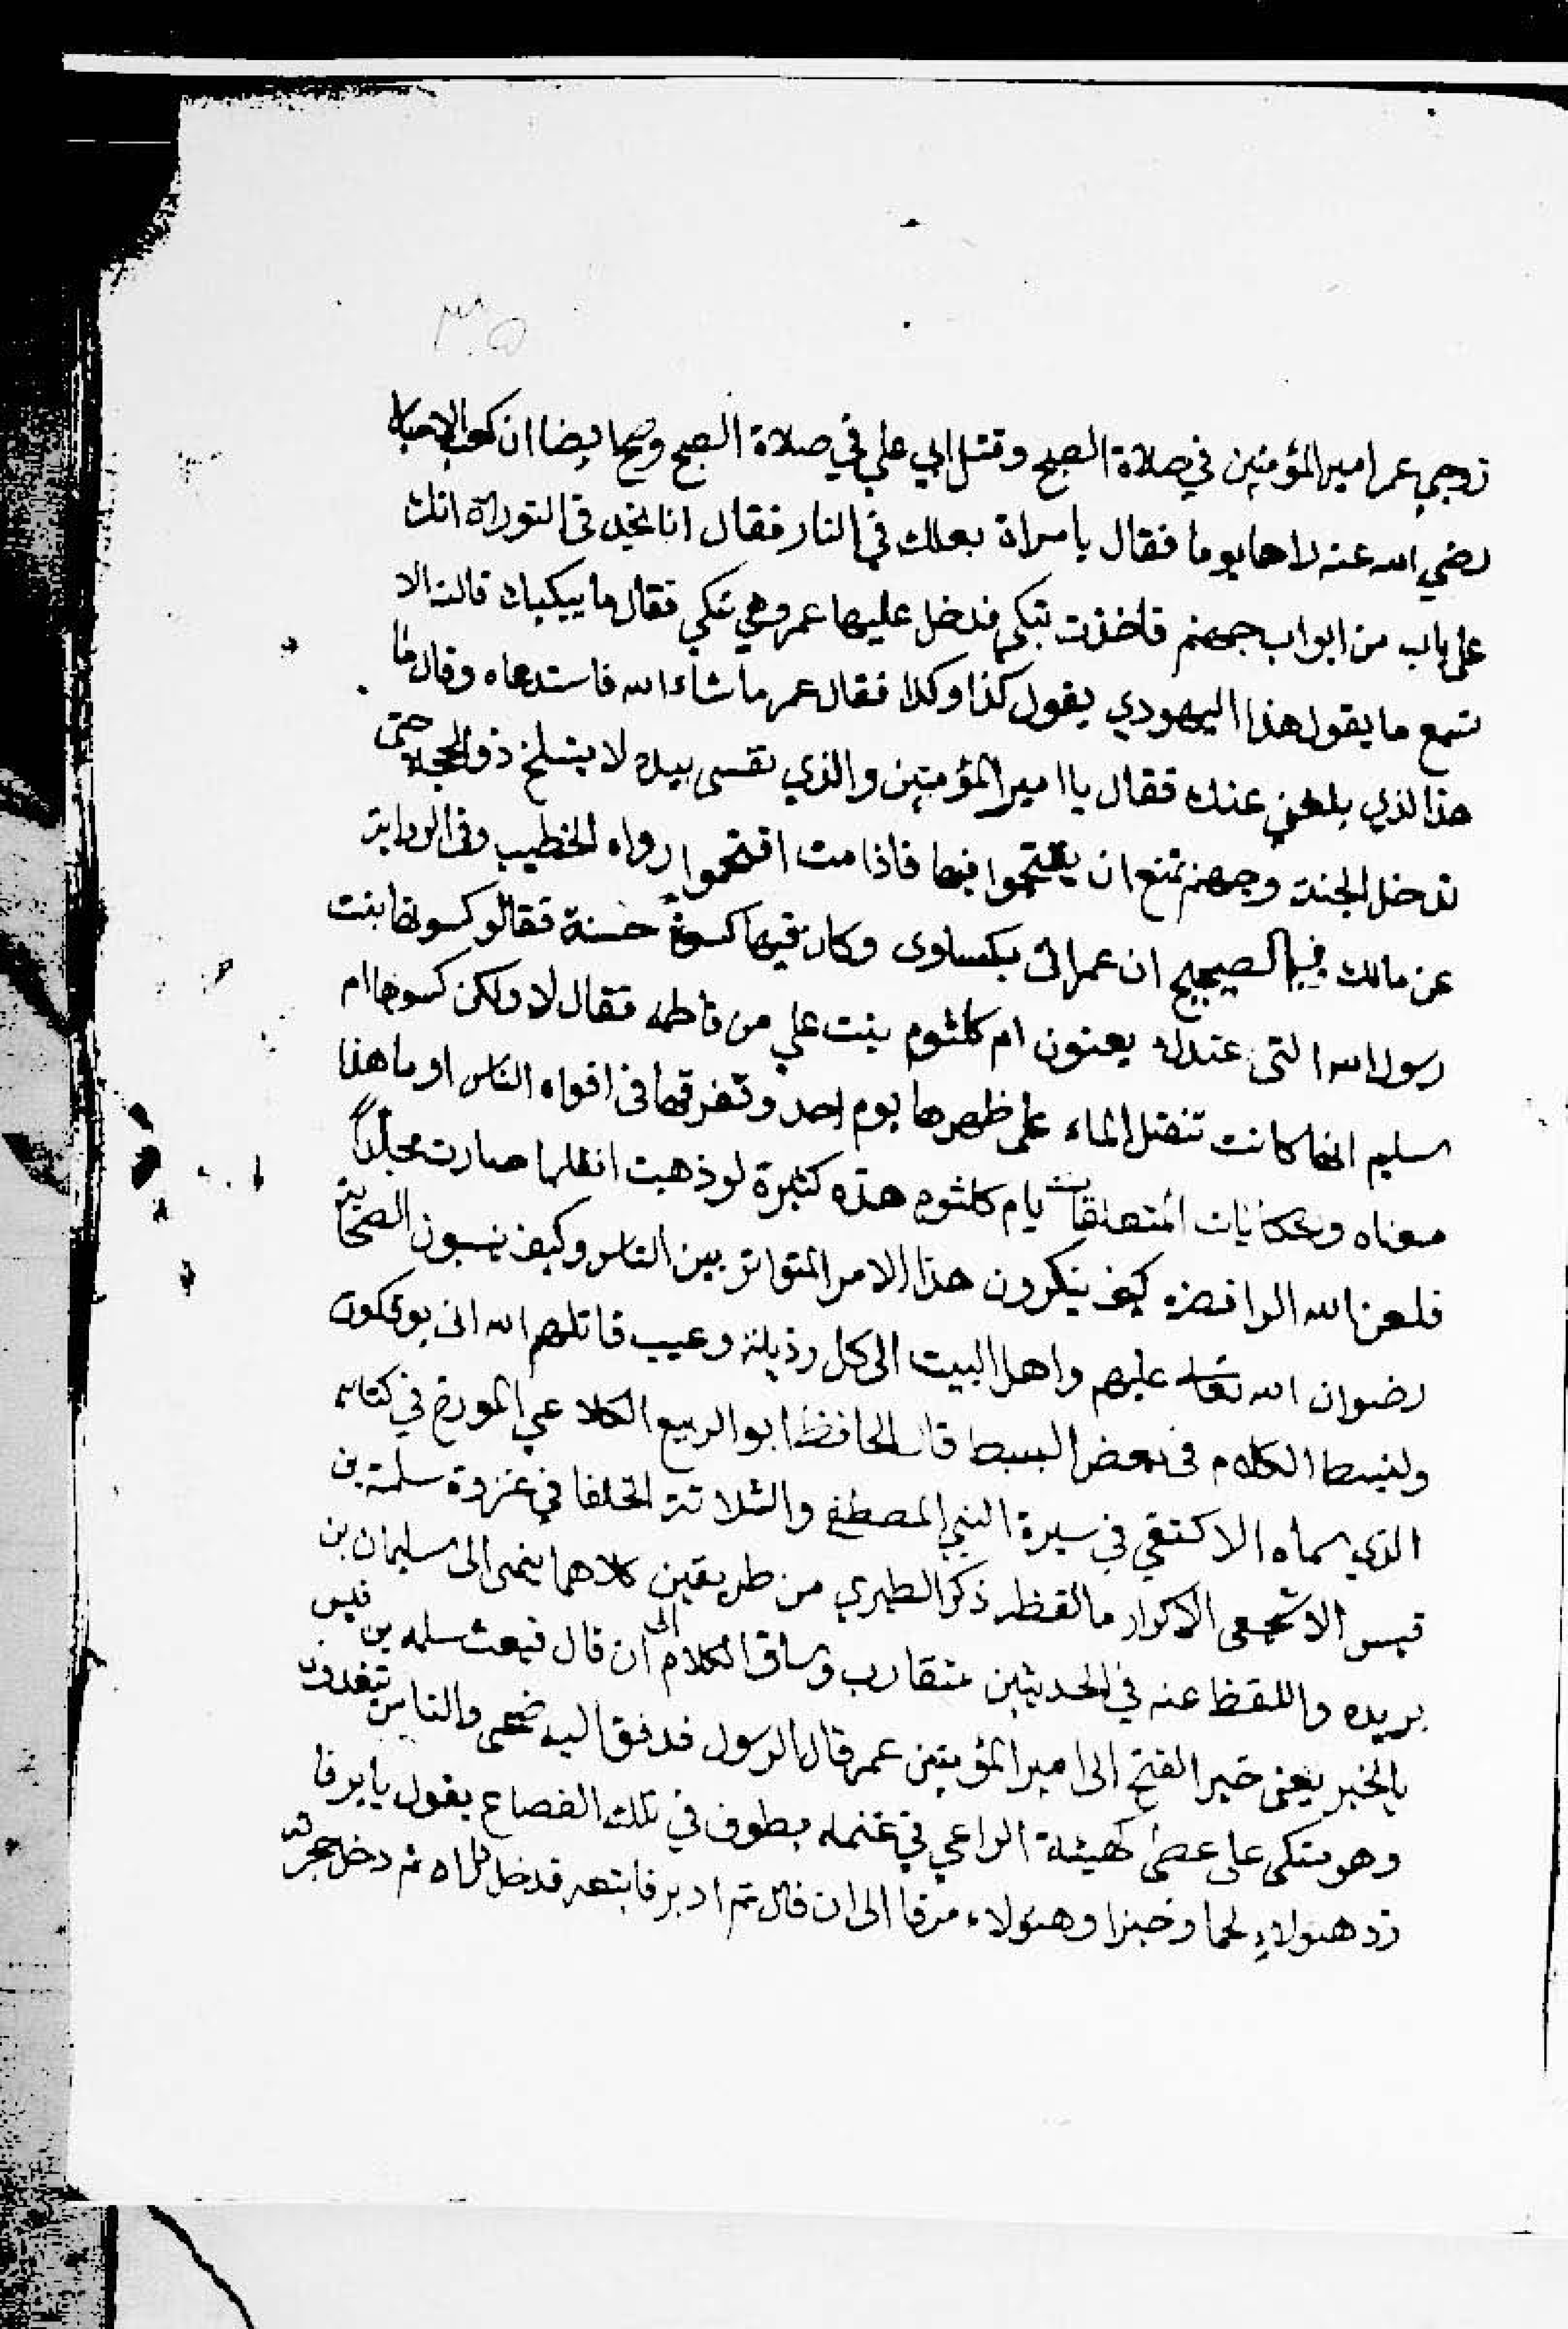 ٣٠٥
زوجي عمر امير المؤمنين في صلاة الصبح وقتل ابي علي في صلاة الصبح وصح ايضا ان كعب الاحبار
رضي الله عنه راها يوما فقال يا مراة بعلك في النار فقال انا نجد في التوراة انك
على باب من ابواب جهنم فاخذت تبكي فدخل عليها عمر وهي تبكي فقال ما يبكيك قالت الا
تسمع ما يقول هذا اليهودي يقول كذا وكذا فقال عمر ما شاء الله فاستدعاه وقال ما
هذا لذي بلغني عنك فقال يا امير المؤمنين والذي نفسي بيده لا ينسلخ ذو الحجة حتى
تدخل الجنة وجهنم تمنع ان يقتحموا فيها فاذا مت اقتحموا رواه الخطيب وفي الرواية
عن مالك في الصحيح ان عمر اتى بكساوى وكان فيها كسوة حسنة فقالو كسوتها بنت
رسول الله التى عندك يعنون ام كلثوم بنت علي من فاطمه فقال لا ولكن كسوها ام
سليم انها كانت تنقل الماء على ظهرها يوم احد وتفرقها في افواه الناس او ما هذا
معناه وحكايات المتعلقات بام كلثوم هذه كثيرة لو ذهبت انقلها صارت مجلداً
فلعن الله الرافضه كيف ينكرون هذا الامر المتواتر بين الناس وكيف ينسبون الصحابة
رضوان الله تعالى عليهم واهل البيت الى كل رذيلة وعيب قاتلهم الله انى يوفكون
ولنبسط الكلام في بعض البسط قال الحافظ ابو الربيع الكلاعي المورخ في كتابه
الذي سماه الاكتفي في سيرة النبي المصطفى والثلاثة الخلفا في غزوة سلمة بن
قيس الاشجعى الاكراد ما لفظه ذكر الطبري من طريقين كلاهما ينمى الى سليمان بن
بريده واللفظ عنه في الحديثين متقارب وساق الكلام الى ان قال فبعث سلمه بن قيس
بالخبر يعنى خبر الفتح الى امير المؤمنين عمر قال الرسول فدفق اليه ضحى والناس يتغدون
وهو متكى على عصى كهيئة الراعي في غنمه يطوف في تلك القصاع يقول يا يرفا
زد هولاءِ لحما وخبزا وهولاء مرقا الى ان قال ثم ادبر فاتبعه فدخل داره ثم دخل حجرته